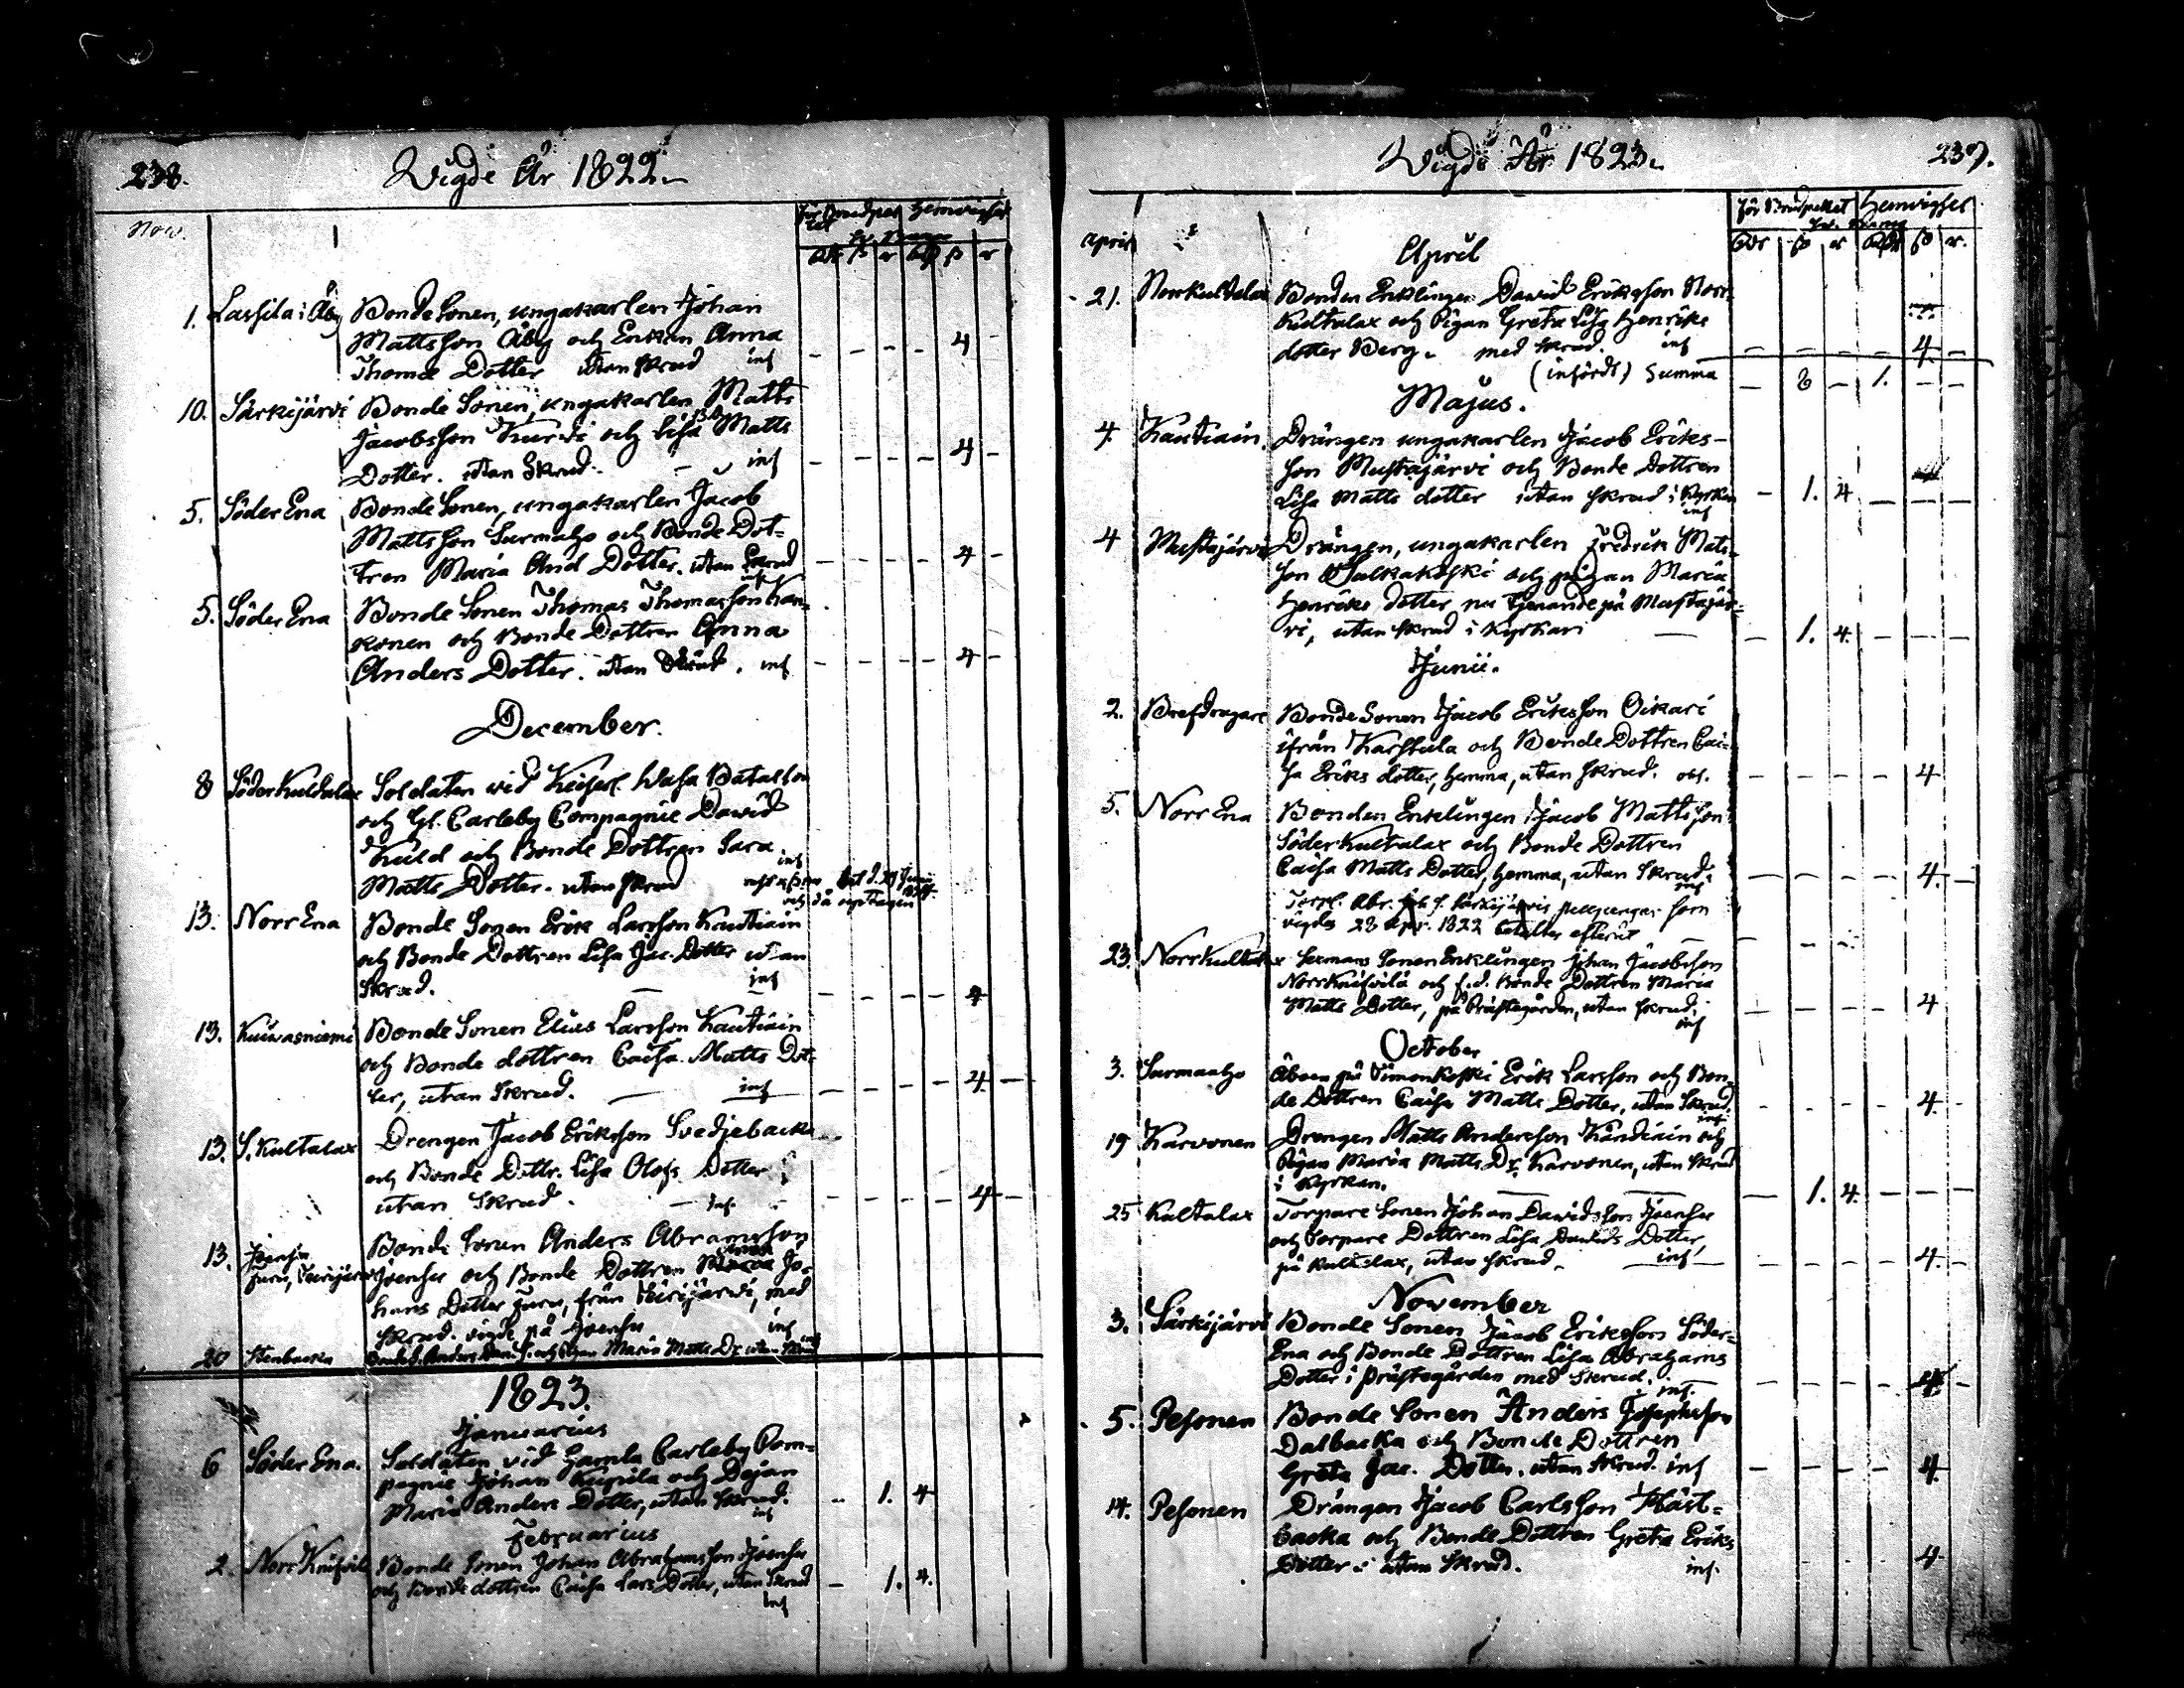 238.
Wigde År 1822.
Nov.
1. Lassila i Åby Bonde Sonen, ungakarlen Johan
Mattsson Åby och Enkan Anna
Thomæ Dotter utan skrud inf - - - - 4 -
10. Särkijärvi Bonde Sonen, ungakarlen Matts
Jacobsson Kurvi och Lisa Matts
Dotter. utan Skrud. inf - - - - 4 -
5. Söder Ena Bonde Sonen, ungakarlen Jacob
Mattsson Surmaho och Bonde Dot-
tren Maria And Dotter. utan Skrud inf - - - - 4 -
5. Söder Ena Bonde Sonen Thomas Thomasson
konen och Bonde Dottren Anna
Anders Dotter. utan Skrud. inf - - - - 4 -
December.
8 Söder Kultalax Soldaten vid Keiserl. Wasa Batalion
och Gl. Carleby Compagnie David
Kuld och Bonde Dottren Sara
Matts Dotter. utan skrud inf
och då upptagen
13. Norr Ena Bonde Sonen Erik Larsson Kautiain
och Bonde Dottren Lisa Jac. Dotter utan
Skrud. inf - - - - 4
13. Kuivasniemi Bonde Sonen Elias Larsson Kautiain
och Bonde dottren Caisa Matts Dot-
ter, utan Skrud. inf - - - - 4 -
13. S. Kultalax Drengen Jacob Eriksson Svedjebacka
och Bonde Dottr. Lisa Olofs Dotter
utan Skrud. inf. - - - - 4 -
13. Joensu Bonde Sonen Anders Abramsson
Joensu och Bonde Dottren Jo-
hans Dotter från med
skrud. vigde på Joensu inf
20 Stenbacka och Pigan Maria Matts Dr utan Skrud
1823.
Januarius
6 Söder Ena. Soldaten vid Gamla Carleby Com-
pagnie Johan Kupila och Dejan
Maria Anders Dotter, utan Skrud. inf - 1. 4
Februarius
2. Norr Knifsilä Bonde Sonen Johan Abrahamsson Joensu
och Bonde dottren Caisa Lars Dotter, utan Skrud inf - 1. 4.
Wigde År 1823.
239.
För Brudpellet Hemvigsel
April
April
21. Norrkultalax Bonden Enklingen David Eriksson Norr-
Kultalax och Pigan Greta Lisa Henriks
dotter Berg. med skrud. inf - - - - 4 -
(införde) Summa - 8 - 1. - -
Majus.
4. Kautiain. Drängen ungakarlen Jacob Eriks-
son Mustajärvi och Bonde Dottren
Lisa Matts dotter utan skrud i Kyrkan inf - 1. 4 - - -
4 Mustajärvi Drängen, ungakarlen Fredrik Mats-
son och pigan Maria
Henriks dotter nu tjenande på Mustajär-
vi, utan skrud i Kyrkan - 1. 4. - - -
Junii.
2. Brefdragare Bonde Sonen Jacob Eriksson Oikari
ifrån Karstula och Bonde Dottren Cai-
sa Eriks dotter, hemma, utan skrud. - - - - 4
5. Norr Ena Bonden Enklingen Jacob Mattsson
Söder Kultalax och Bonde Dottren
Caisa Matts Dotter, hemma, utan Skrud. inf - - - - 4. -
Abr. Särkijärvis som
vigdes 28 Apr. 1822 efteråt
23. Norrkultalax Sonen Enklingen Johan Jacobsson
Norr Knifsilä och f.d. Bonde Dottren Maria
Matts Dotter, på Prästegården, utan skrud. inf - - - - 4
October
3. Surmaaho Åboen på Timonkoski Erik Larsson och Bon-
de Dottren Caisa Matts Dotter, utan Skrud. inf - - - - 4.
19 Karvonen Drengen Matts Andersson Kandiain och
Pigan Maria Matts Dr. Karvonen, utan skrud
i Kyrkan. - 1. 4. - - -
25 Kultalax Torpare Sonen Johan Davidsson Joensu
och Torpare Dottren Lisa Davids Dotter
på Kultalax, utan skrud. inf - - - - 4. -
November
3. Särkijärvi Bonde Sonen Jacob Eriksson Söder-
Ena och Bonde Dottren Lisa Abrahams
Dotter i Prästegården med Skrud. inf. - - - - 4. -
5. Pesonen Bonde Sonen Anders Josephsson
Dalbacka och Bonde Dottren
Greta Jac. Dotter. utan Skrud. inf - - - - 4.
14. Pesonen Drängen Jacob Carlsson Häst-
backa och Bonde Dottren Greta Eriks
Dotter. utan Skrud. inf. - - - - 4